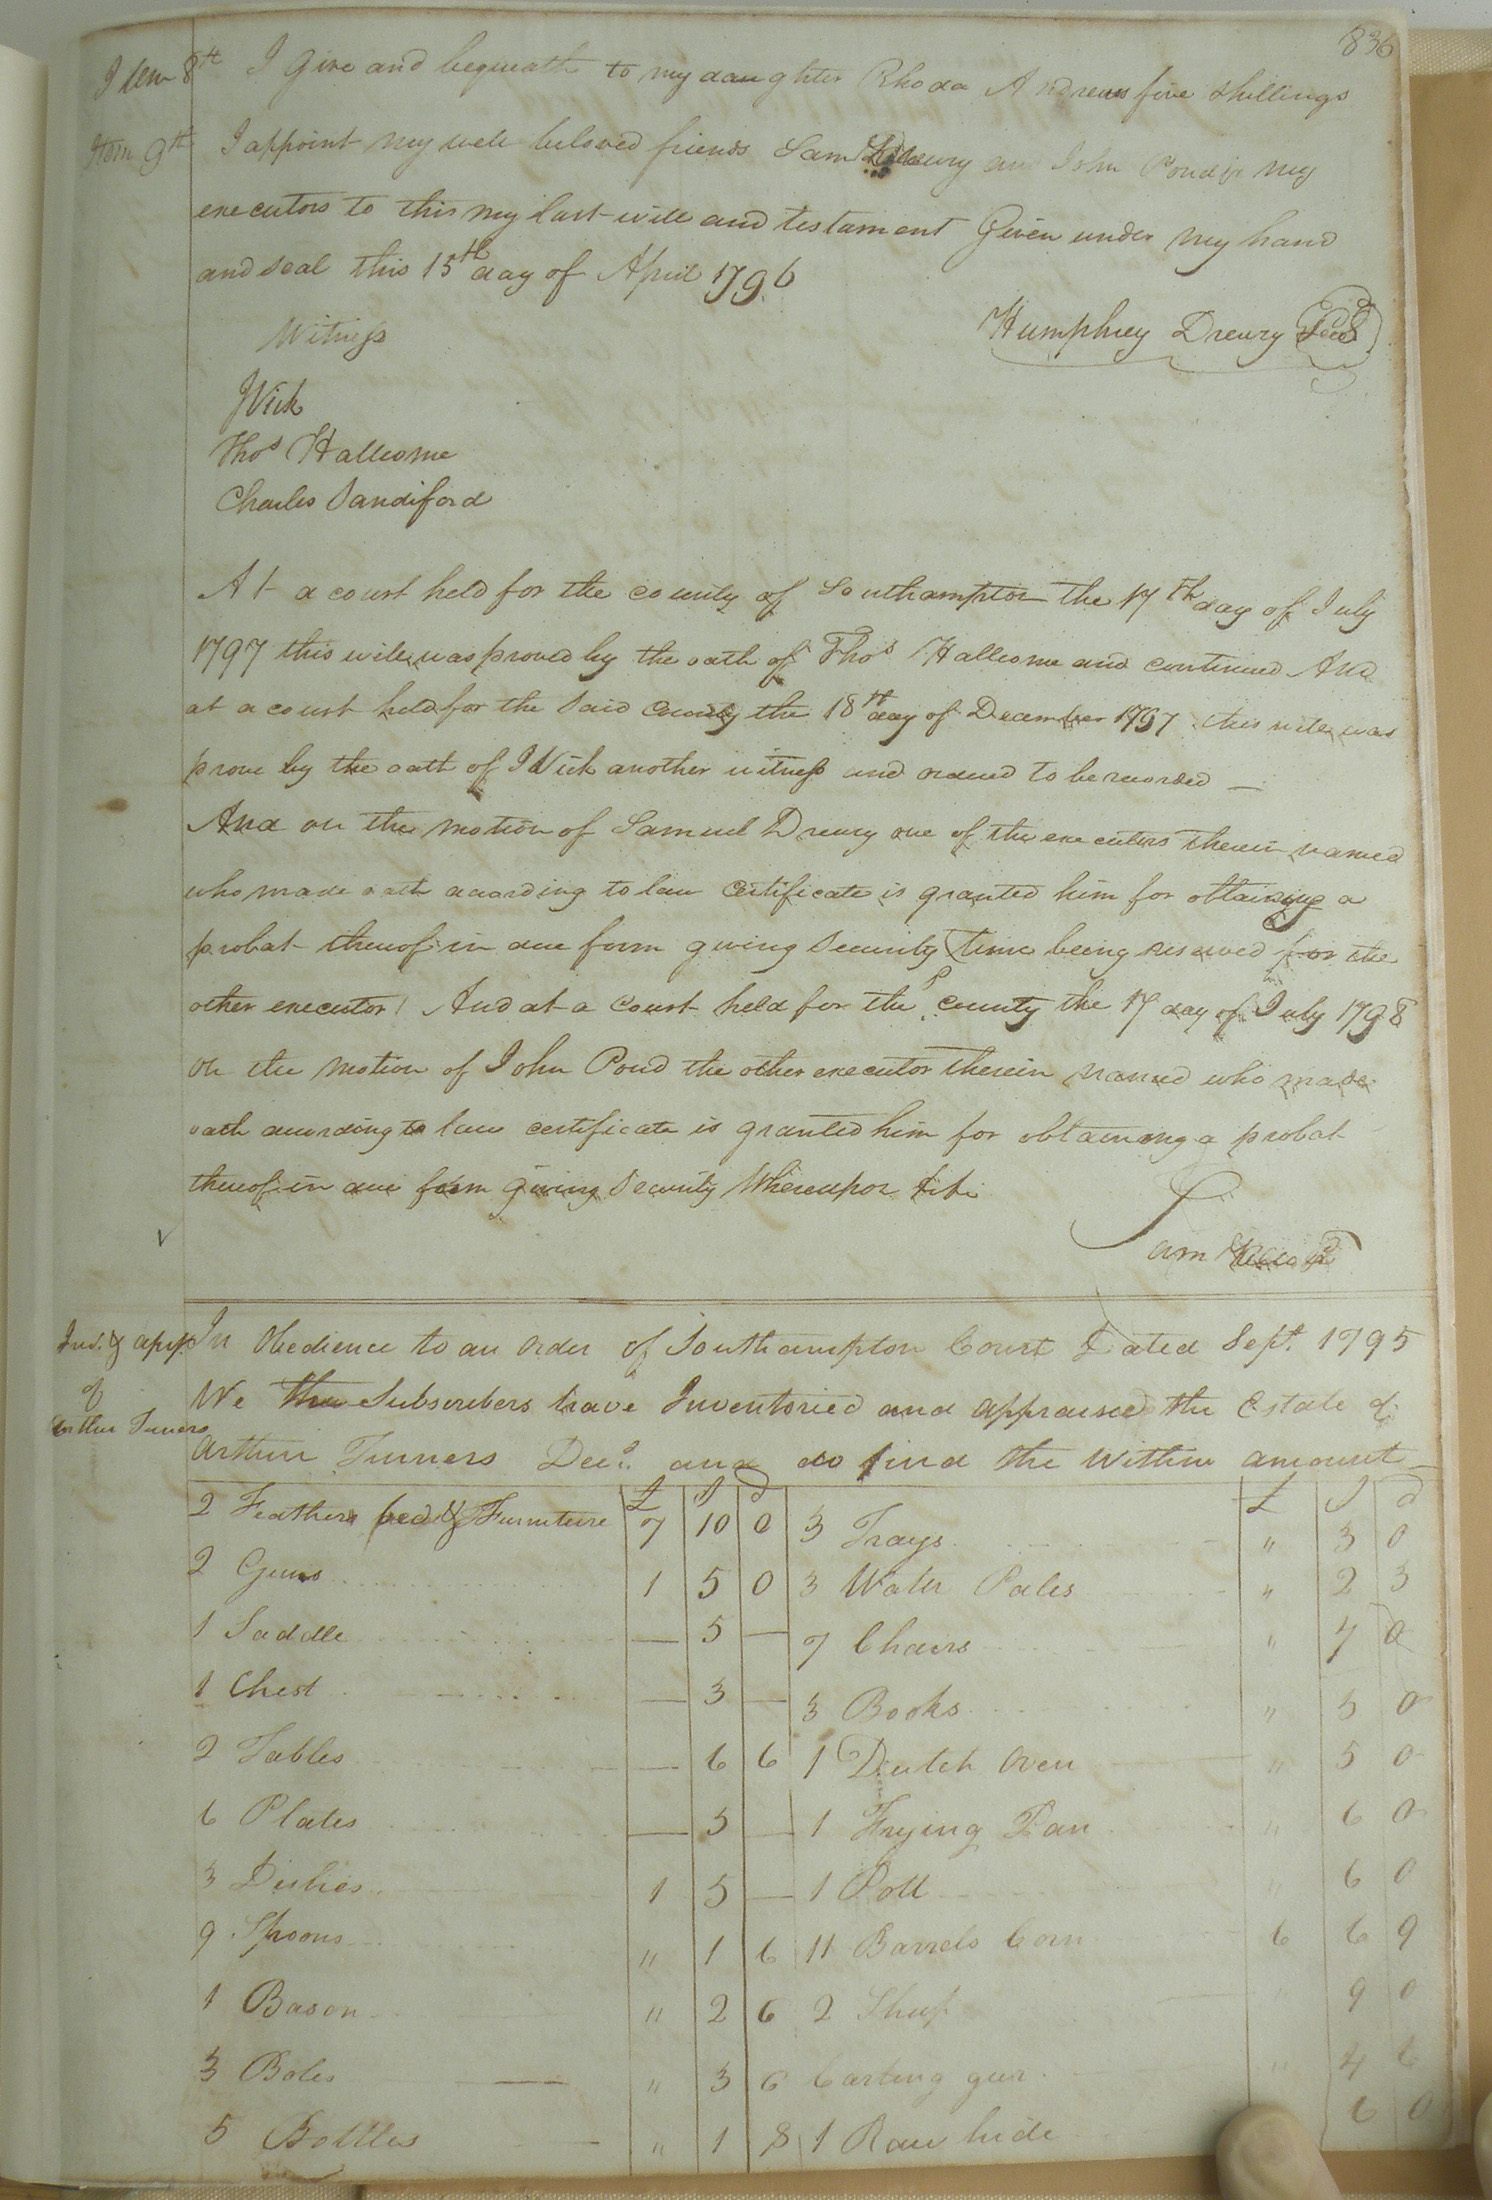 836
Item 8th I Give and bequeath to my daughter Rhoda Andrews five shillings
Item 9th I appoint my well beloved friends Sam Drewry and John Pond jr my
executors to this my last will and testament Given under my hand
and seal this 15th day of April 1796
Witness
Humphrey Drewry Seal
J Vick
Thos Hallcome
Charles Sandiford
At a court held for the county of Southampton the 17th day of July
1797 this will was proved by the oath of Thos Hallcome and continued And
at a court held for the said county the 18th day of December 1797 this will was
prove by the oath of J Vick another witness and ordered to be recorded —
And on the motion of Samuel Drewry one of the executors therein named
who made oath according to law certificate is granted him for obtaining a
probat thereof in due form giving security time being reserved for the
other executor And at a court held for the sd county the 17 day of July 1798
On the motion of John Pond the other executor therein named who made
oath according to law certificate is granted him for obtaining a probat
thereof in due form giving security Whereupon
Sam
Inv. & app. of Arthur Turners
In Obedience to an order of Southampton Court Dated Sept. 1795
We the Subscribers have Inventoried and appraised the Estate of
Arthur Turners Decd. and do find the within amount
£ S d £ S d
2 Feathers bed & Furniture 7 10 0 3 Trays " 3 0
2 Guns 1 5 0 3 Water Pales " 2 3
1 Saddle — 5 — 7 Chairs " 7 0
1 Chest — 3 — 3 Books " 5 0
2 Tables — 6 6 1 Dutch Oven " 5 0
6 Plates — 5 — 1 Frying Pan " 6 0
3 Dishes 1 5 — 1 Pott " 6 0
9 Spoons " 1 6 11 Barrels Corn 6 6 9
1 Bason " 2 6 2 Sheep 9 0
3 Boles " 3 6 Carting gear " 4 6
5 Bottles " 1 8 1 Raw hide 6 0